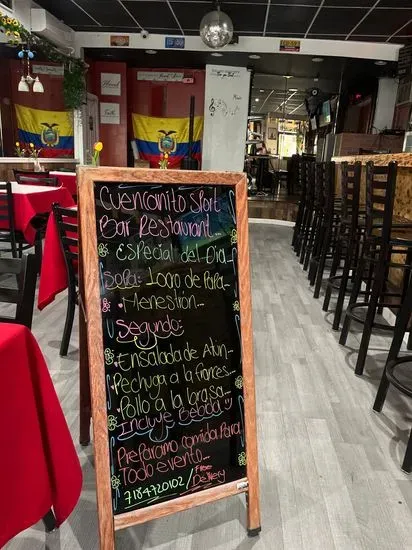 Cuencanito Sport
Bar Restaurant...
Especial del Dia
Sopa: Locro de Papa.
Menestron...
Segundo:
Ensalada de Atun...
Pechuga a la frances...
Pollo a la brasa...
Incluye Bebida
Preparamo comida Para
Todo evento...
7184720102/ Free
Delivery